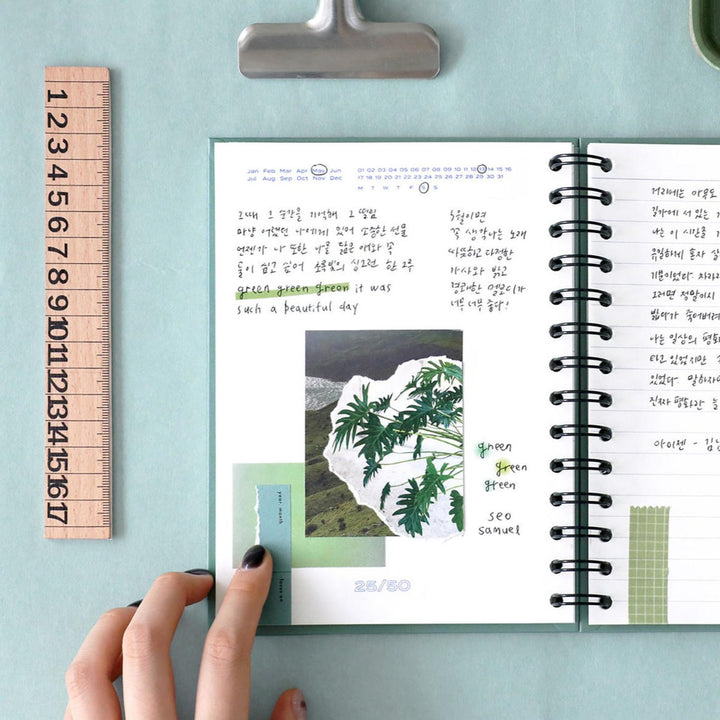 1
2
3
4
5
6
7
8
9
10
11
12
13
14
15
16
17
Jan Feb Mar Apr May Jun
Jul Aug Sep Oct Nov Dec
01 02 03 04 05 06 07 08 09 10 11 12 13 14 15 16
17 18 19 20 21 22 23 24 25 26 27 28 29 30 31
M T W T F S S
그때 그 순간을 기억해 그 떨림
마냥 어렸던 나에게 있어 소중한 선물
언제가 나 또한 너를 닮은 너와 꼭
숲이 쉽고 싶어 초록빛의 싱그런 한 그루
green green green it was
such a beautiful day
5월이면
꼭 생각나는 노래
따뜻하고 다정한
가사와 밝고
경쾌한 멜로디가
너무너무 좋다!
green
green
green
seo
samuel
year. month
25/50
거리에는 아무도
길가에 서 있는
나는 이 시간을
유일하게 혼자
기쁨이었다 차라리
그러면 정말이지
밟다가 죽어버려
나는 일상의 평화
타고 있었지만
있었다. 말하자
진짜 평화란 늘
아이젠 - 김